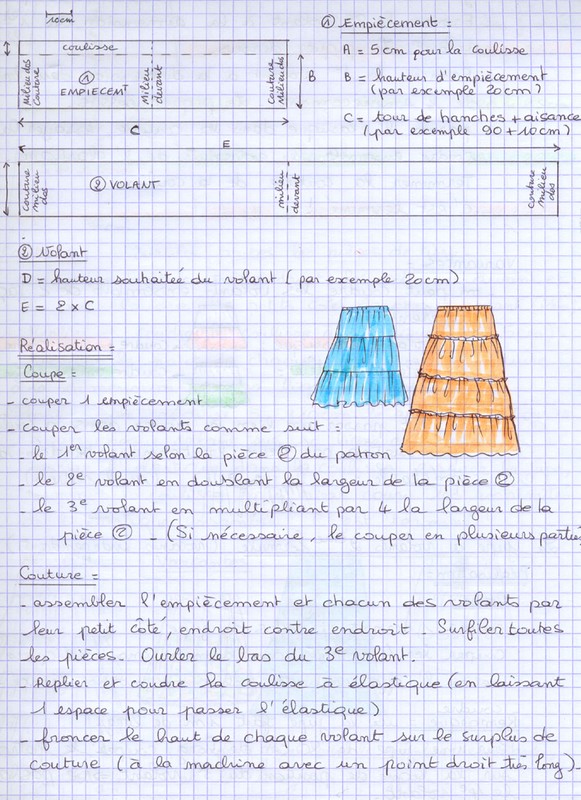 10cm
① Empiècement :
A = 5cm pour la coulisse
B = hauteur d'empiècement
(par exemple 20cm)
C = tour de hanches + aisance
(par exemple 90 + 10cm)
coulisse
Milieu dos
Couture
①
EMPIECEMT
Milieu
devant
Couture
Milieu dos
B
C
E
couture
milieu
dos
② VOLANT
milieu
devant
couture
milieu
dos
② Volant
D = hauteur souhaiteé du volant (par exemple 20cm)
E = 2 x C
Réalisation =
Coupe =
- couper 1 empiècement
- couper les volants comme suit :
- le 1er volant selon la pièce ② du patron
- le 2e volant en doublant la largeur de la pièce ②
- le 3e volant en multipliant par 4 la largeur de la
pièce ② - (Si nécessaire, le couper en plusieurs parties
Couture =
- assembler l'empiècement et chacun des volants par
leur petit côté, endroit contre endroit. Surfiler toutes
les pièces. Ourler le bas du 3e volant.
- Replier et coudre la coulisse à élastique (en laissant
1 espace pour passer l'élastique)
- froncer le haut de chaque volant sur le surplus de
couture (à la machine avec un point droit très long).